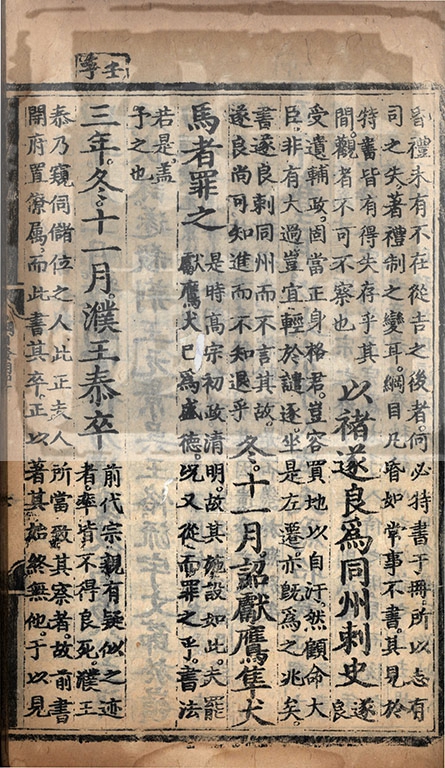 壬
昏禮未有不在從吉之後者何必特書于冊所以志有
司之失著禮制之變耳綱目凡昏如常事不書其見於
特書皆有得失存乎其
間觀者不可不察也
以褚遂良爲同州刺史
遂
良
受遺輔政固當正身格君豈容買地以自汙然顧命大
臣非有大過豈宜輕於譴逐坐是左遷亦既爲之兆矣
書遂良刺同州而不言其故
遂良尚可知進而不知退乎
冬。十一月。詔獻鷹隼犬
馬者罪之
是時高宗初政清明故其施設如此夫罷
獻鷹犬已爲盛德既又從而罪之乎書法
若是蓋
予之也
三年。冬。十一月。濮王泰卒
前代宗親有疑似之迹
者率皆不得良死濮王
泰乃窺伺儲位之人此正志人所當致其察者故前書
開府置僚屬而此書其卒正以著其始終無他于以見